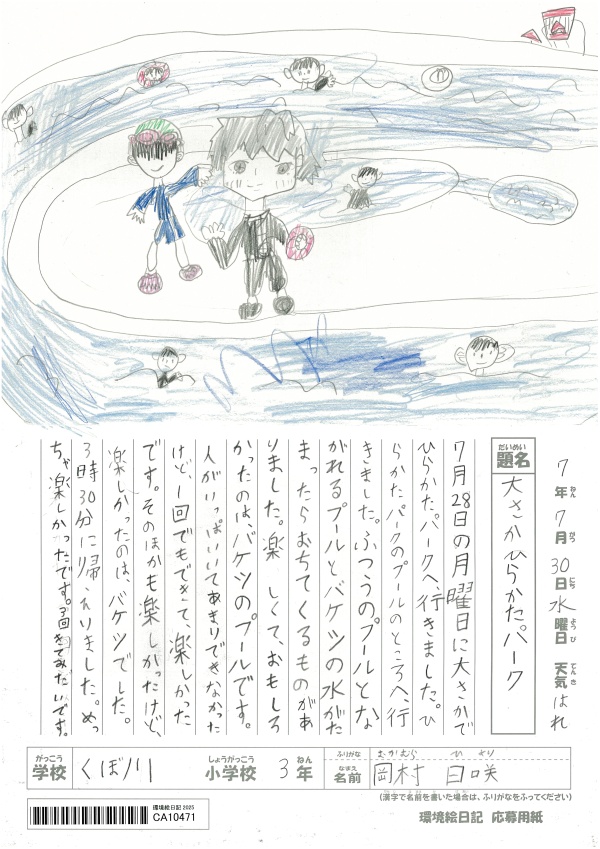 7年ねん7月がつ30日にち水曜日ようび 天気てんき はれ
だいめい
題名
大さかひらかたパーク
7月28日の月曜日に大さかで
ひらかたパークへ、行きました。ひ
らかたパークのプールのところへ、行
きました。ふつうのプールとな
がれるプールとバケツの水がた
まったらおちてくるものがあ
りました。楽しくて、おもしろ
かったのは、バケツのプールです。
人がいっぱいいてあまりできなかった
けど、1回でもできて、楽しかった
です。そのほかも楽しかったけど、
楽しかったのは、バケツでした。
3時30分に帰えりました。めっ
ちゃ楽しかったです。3回きてみたいです。
がっこう
学校
くぼ川
しょうがっこう
小学校
3
ねん
年
ふりがな
おかむら ひより
なまえ
名前
岡村 日咲
(漢字で名前を書いた場合は、ふりがなをふってください)
環境絵日記 2025
CA10471
環境絵日記 応募用紙